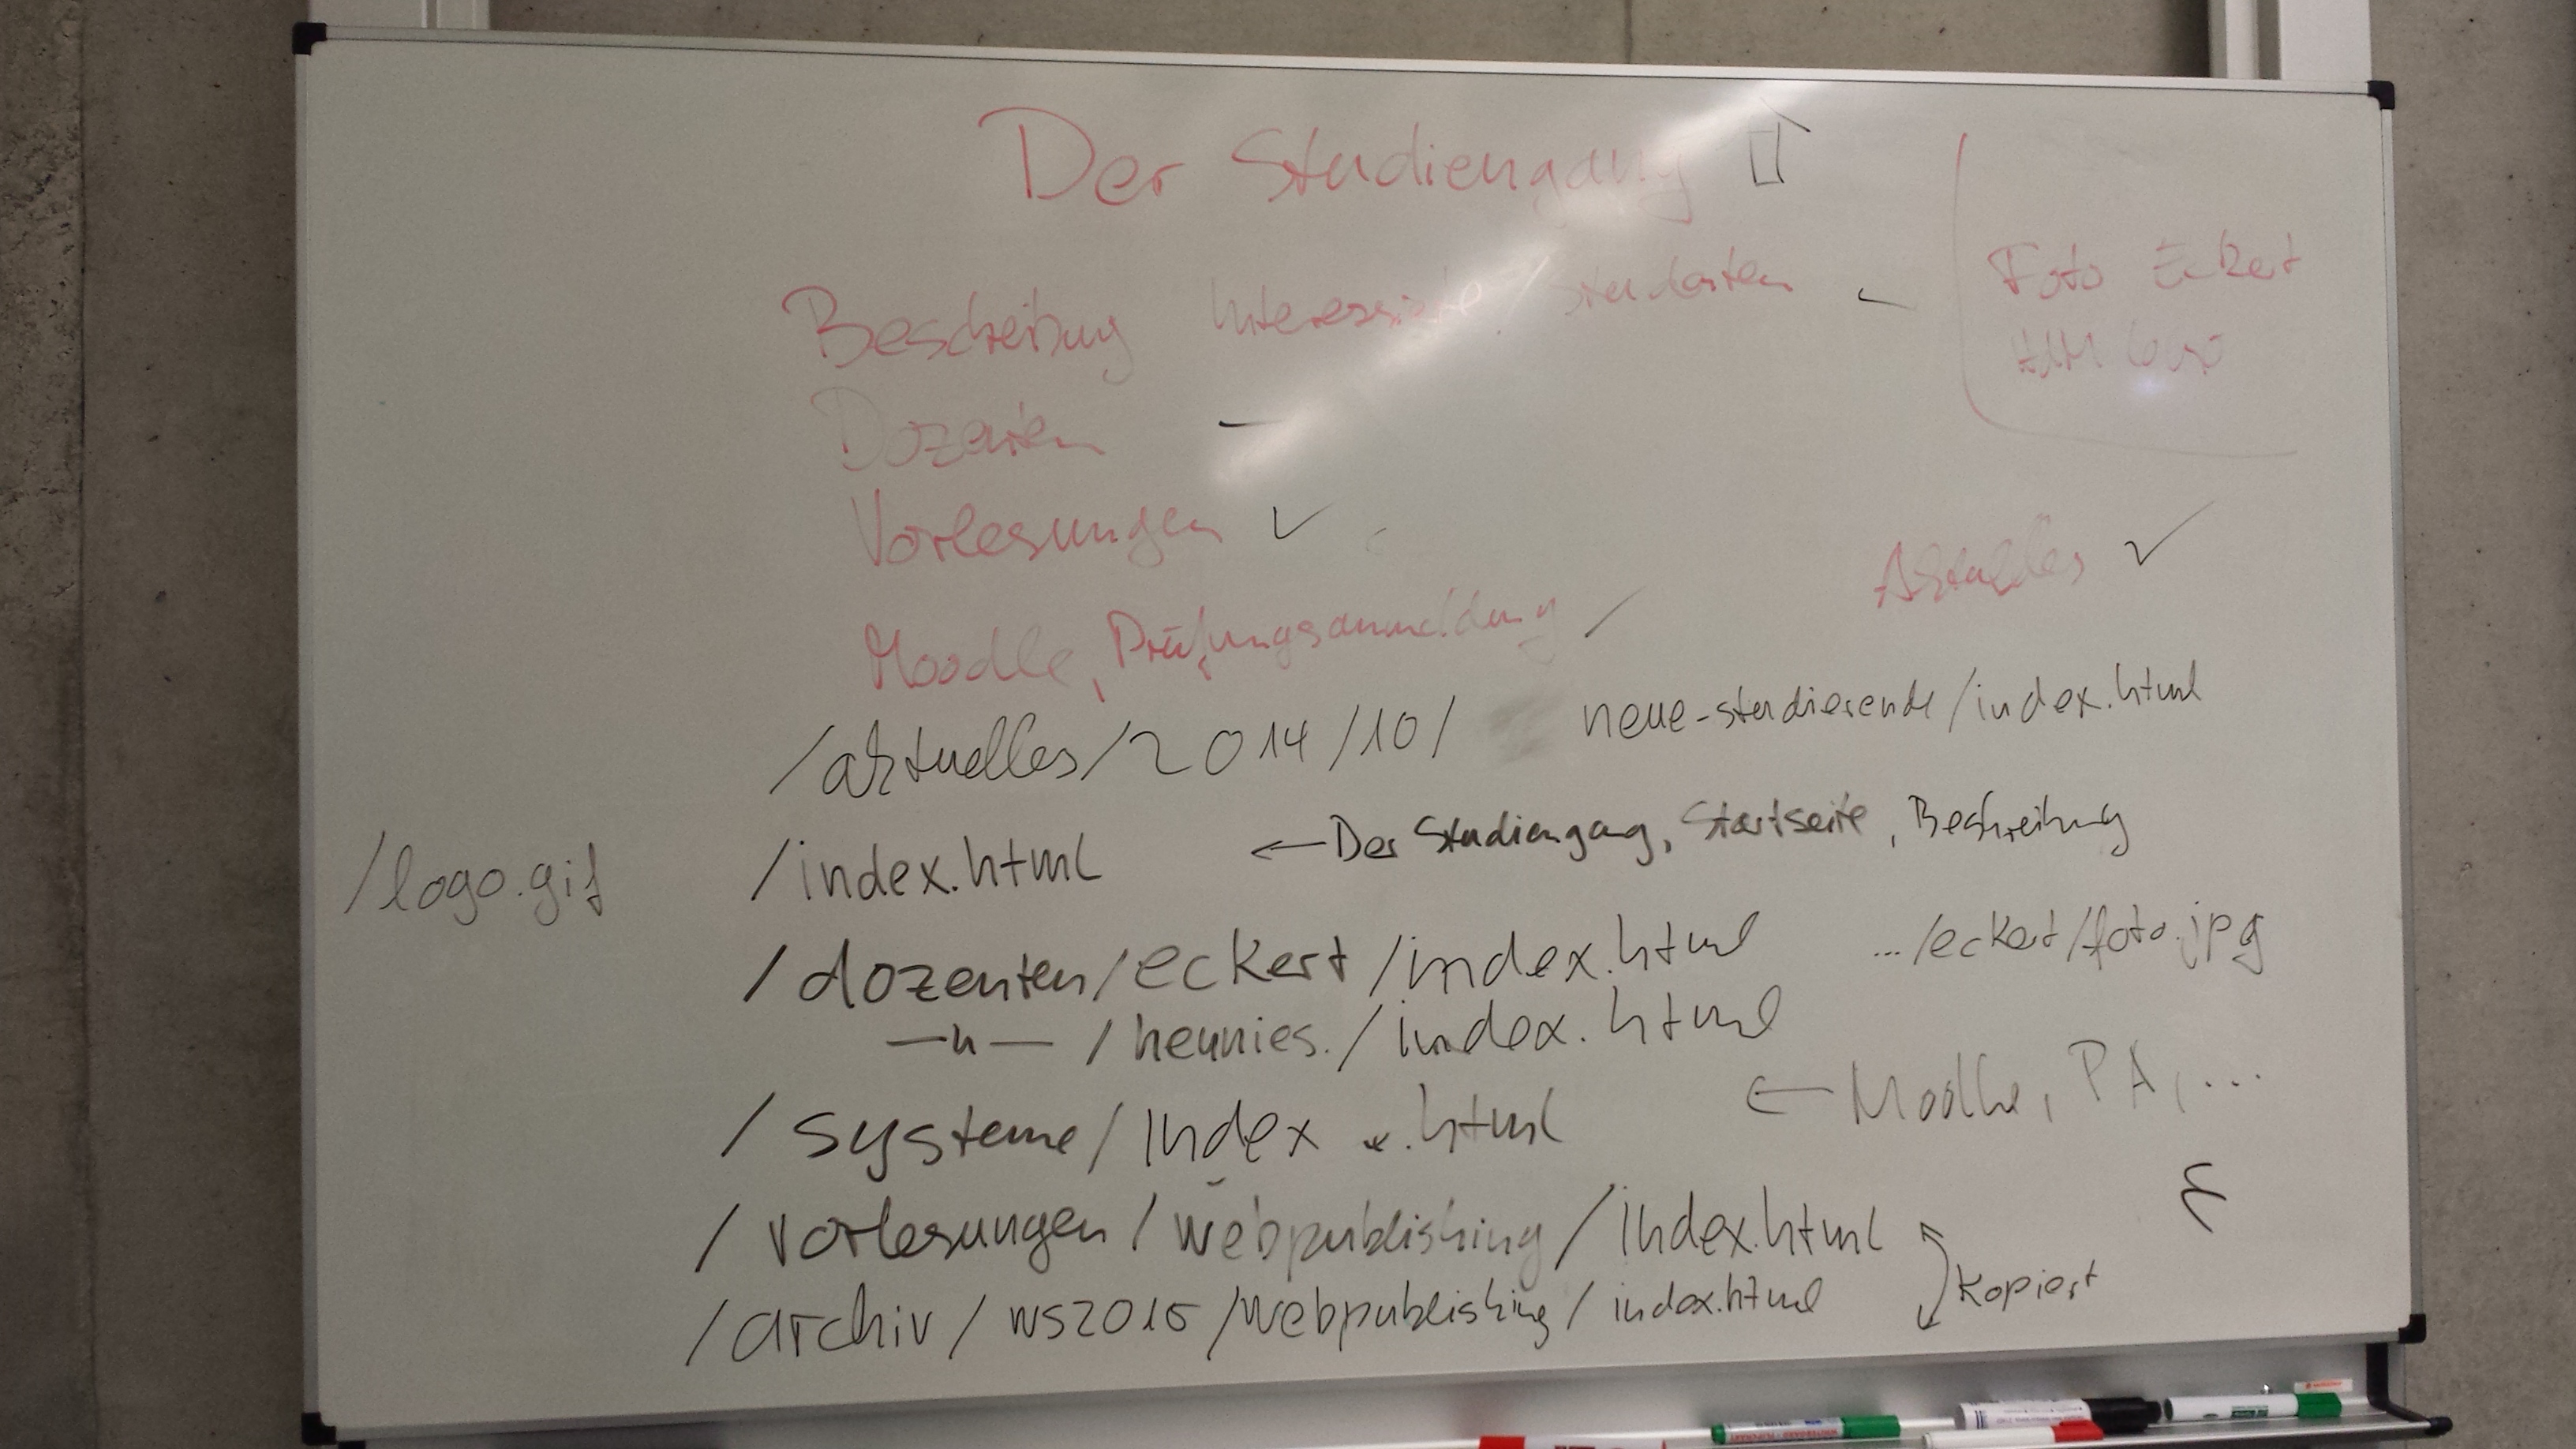 Der Studiengang
Beschreibung Interessierte / Studenten
Foto Eckert
HdM Logo
Dozenten
Vorlesungen ✓
Aktuelles ✓
Moodle, Prüfungsanmeldung
/aktuelles/2014/10/ neue-studierende/index.html
/logo.gif
/index.html ← Der Studiengang, Startseite, Beschreibung
/dozenten/eckert/index.html .../eckert/foto.jpg
—"— /hennies/index.html
/systeme/index.html ← Moodle, PA, ...
/vorlesungen/webpublishing/index.html
kopiert
/archiv/ws2015/webpublishing/index.html